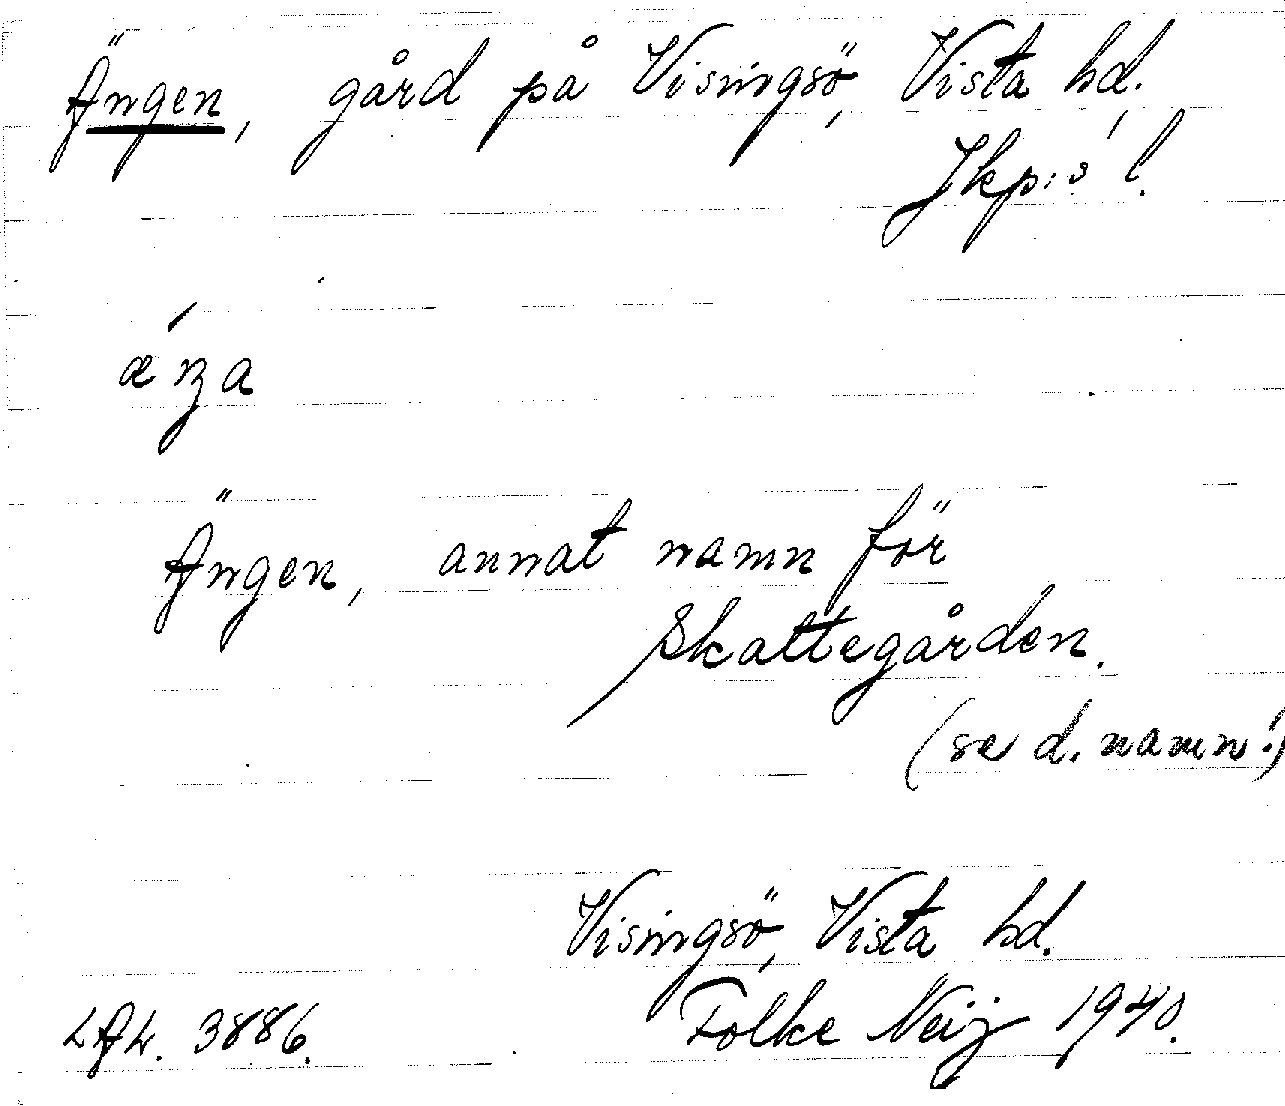 Ängen, gård på Visingsö, Vista hd,
Jkp:s l.
Ängen, annat namn för
Skattegården.
(se d. namn!)
Visingsö, Vista hd.
Folke Neij 1940.
3886.